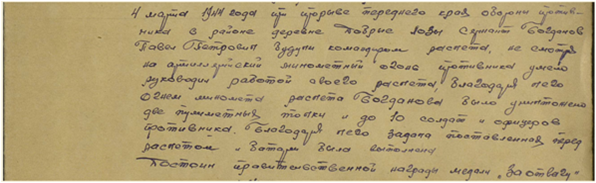 4 марта 1944 года при прорыве переднего края обороны против-
ника в районе деревне Лозы Сержант Богданов
Павел Петрович будучи командиром расчета, не смотря
на артиллерийский минометный огонь противника умело
руководил работой своего расчета, Благодаря чего
Огнем миномета расчета Богданова было уничтожено
две пулеметных точки и до 10 солдат и офицеров
противника. Благодаря чего задача поставленная перед
расчетом и была выполнена
Достоин правительственной награды медали „За отвагу"